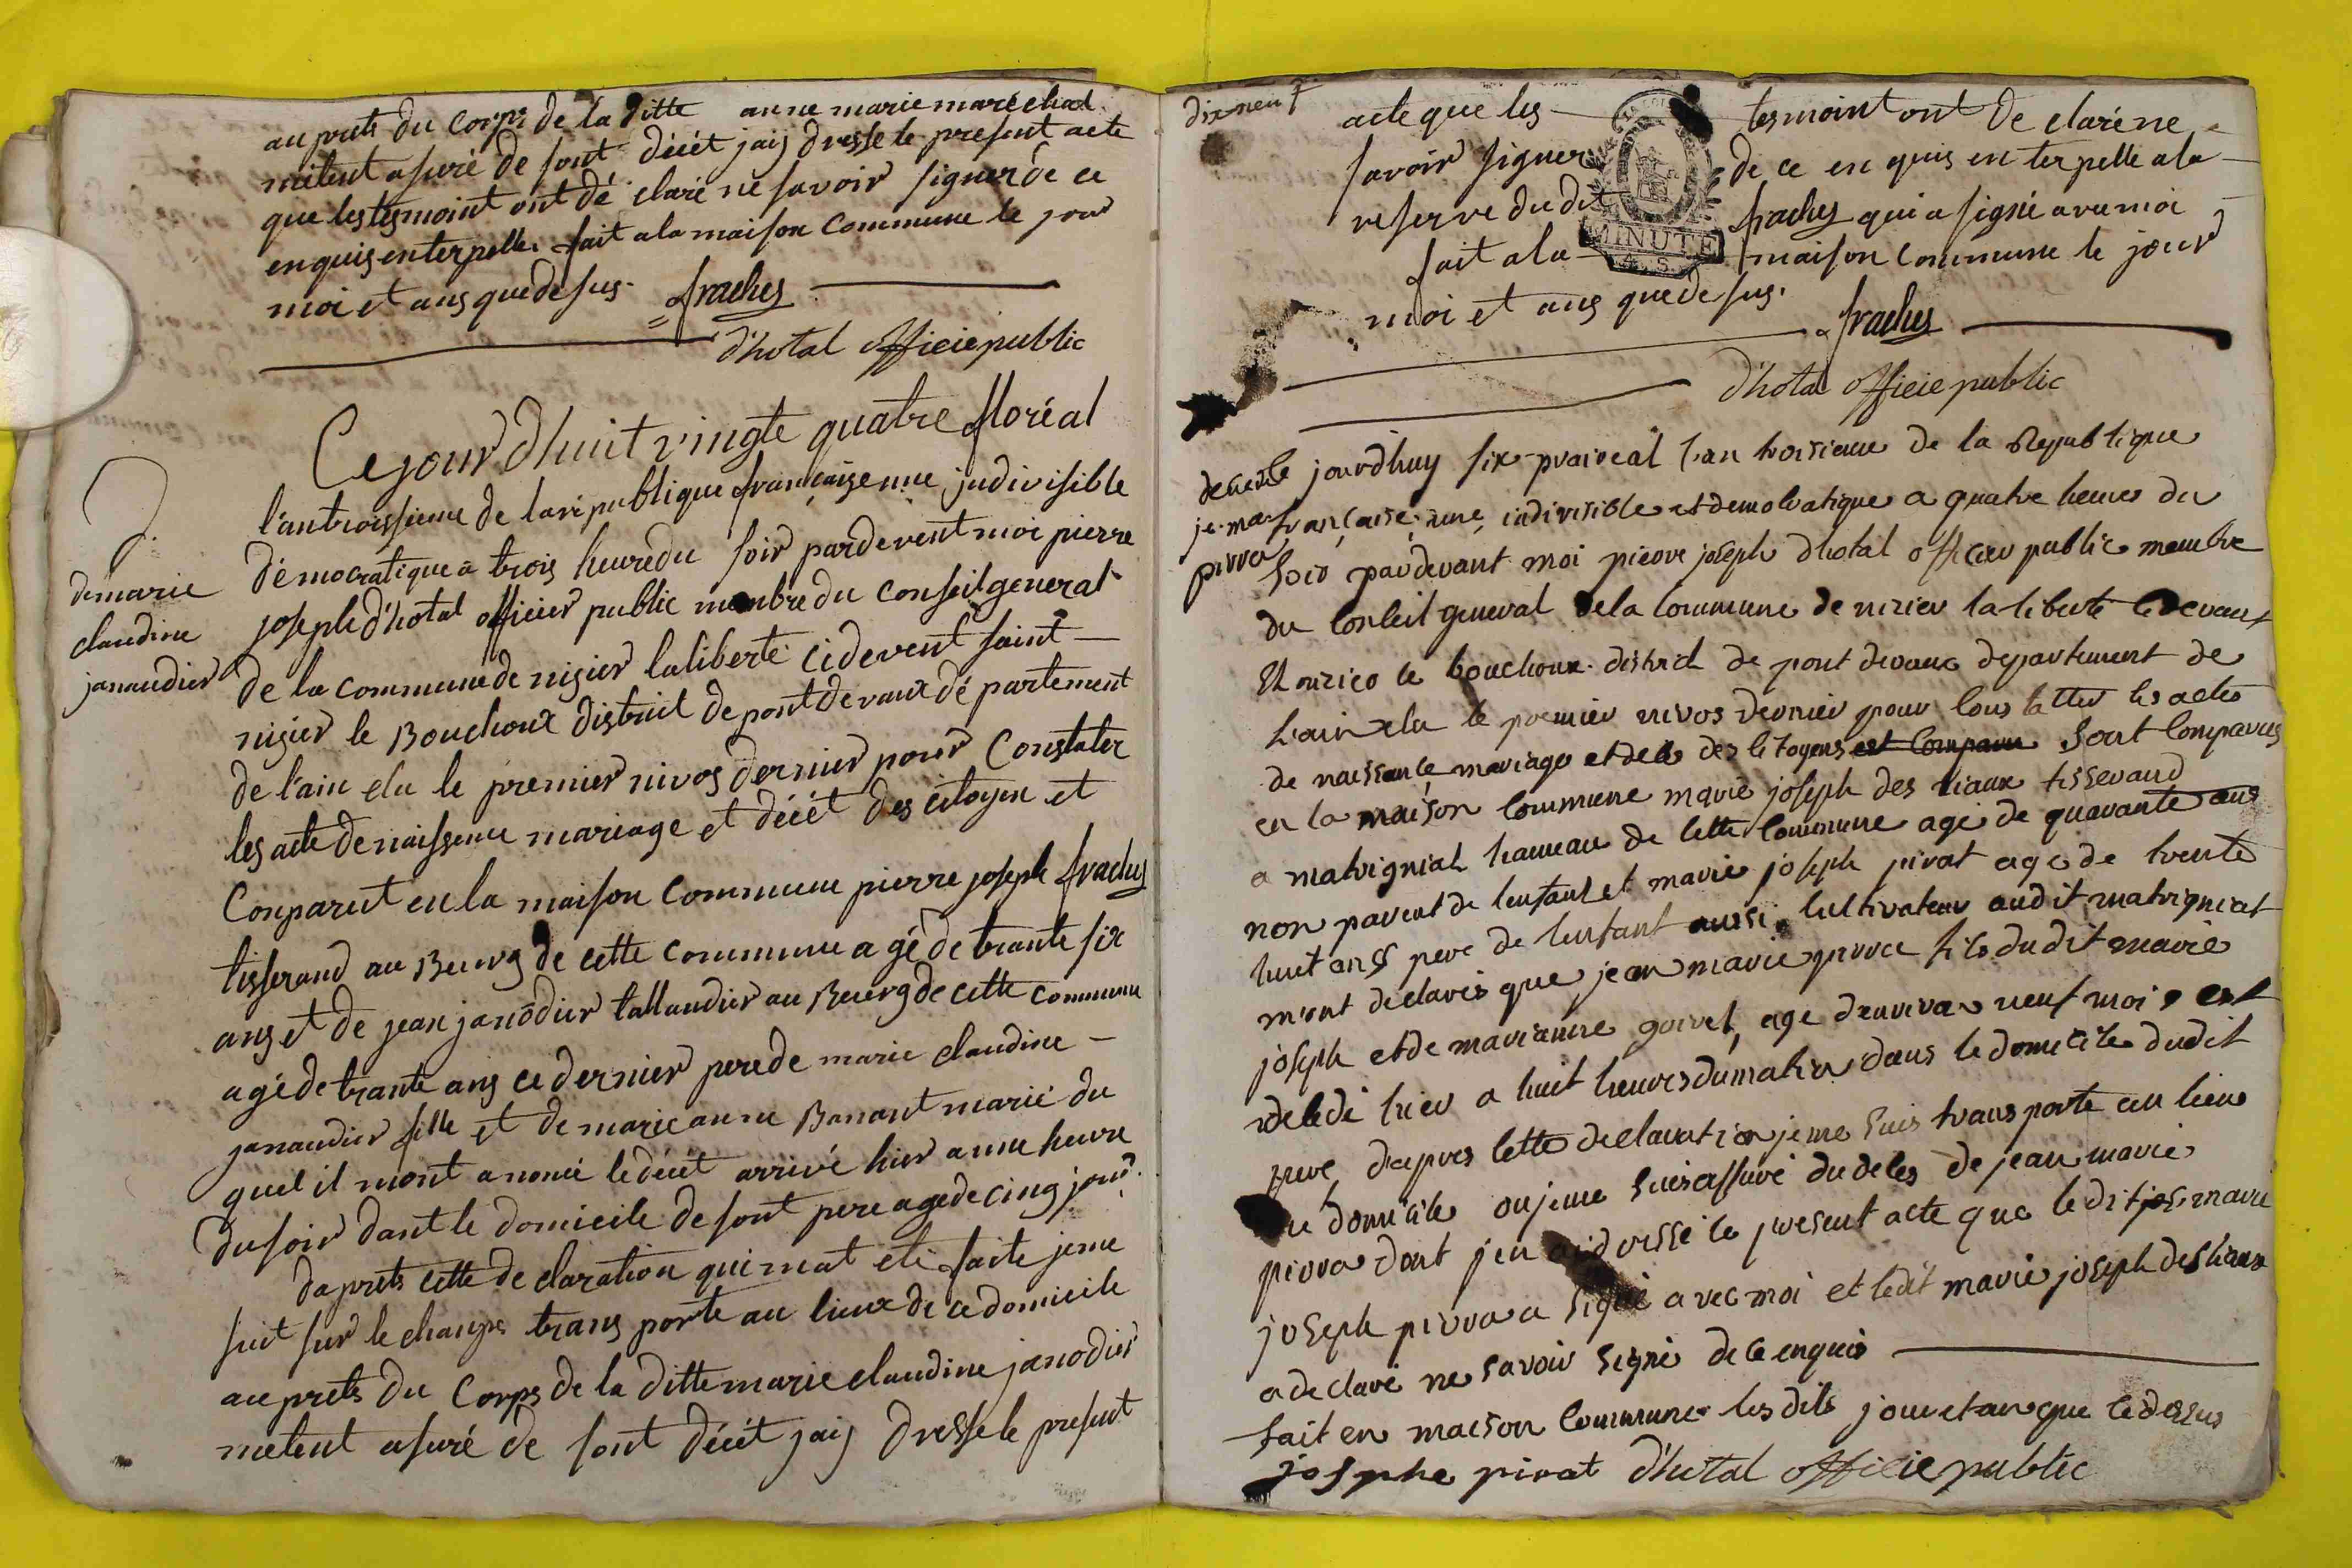 au prets du Corps de la ditte anne marie maréchal
metent asuré de sont décét jaij dresse le present acte
que les tesmoint ont dé claré ne savoir signer de ce
enquis enterpelle. fait a la maison Commune le jour
moi et ans que desus. fraches
d'hotal officie public
Ce jour dhuit vingte quatre floréal
l'antroissieme de la république française une judivisible
démocratique a trois heure du soir pardevent moi pierre
joseph d'hotal officier public membre du conseil general
de la commune de nisier la liberté cidevent saint
nisier le Bouchoux district de pont de vaux dé partement
de l'ain elu le premier nivos dernier pour Constater
les acte de naissence mariage et décét des citoyen et
Conparut en la maison Commune pierre joseph fraches
tisserand au Beurg de cette commune a gé de trante six
ans et de jean janodier tallandier au Beurg de cette commune
agé de trante ans ce dernier pere de marie claudine
janaudier fille et de marie anne Banant marié du
quel il mont anoncé le décét arrivé hier a une heure
du soir dant le domicile de sont pere agé de cinq jour.
daprets cette de claration qui mat eté faite je me
suit sur le champs trans porté au lieux de ce domicile
au prets du Corps de la ditte marie claudine janodier
metent asuré de sont décét jaij dresse le present
D.
de marie
claudine
janaudier
dix neuf
acte que les tesmoint ont de claré ne
savoir signer de ce en quis en terpelle a la
reserve du dit fraches qui a signé avu moi
fait a la maison Commune le jour
moi et ans que desus.
fraches
MINUTE
d'hotal officie public
deces
je. ma
pirra
Ce jourdhuy six prairéal l'an troisieme de la Republique
française, une, indivisible et democratique a quatre heures du
soir pardevant moi pierre joseph dhotal officier public membre
du Conseil general de la Commune de nizier la liberté cidevant
St nizier le bouchoux district de pont devaux departement de
l'ain elu le premier nivos dernier pour constatter les actes
de naissance mariage et deces des citoyens est comparu sont comparus
en la maison commune marie joseph des viaux tisserand
a matrigniat hameau de cette commune agé de quarante ans
non parent de lenfant et marie joseph pirat agé de trente
huit ans pere de lenfant aussi cultivateur audit matrigniat
mont declarés que jean marie pirra fils dudit marie
joseph et de marianne goivet, agé denviron neuf mois est
decedé hier a huit heures du matin dans le domicile dudit
pere, daprés cette declaration je me suis transporté au lieu
de domicile ou je me suis assuré du deces de jean marie
pirra dont jen ai dressé le present acte que le dit jos. marie
joseph pirra a signé avec moi et ledit marie joseph desviaux
a declaré ne savoir signé de ce enquis
fait en maison Commune les dits jour et an que cedessus
josphe pirat d'hotal officie public